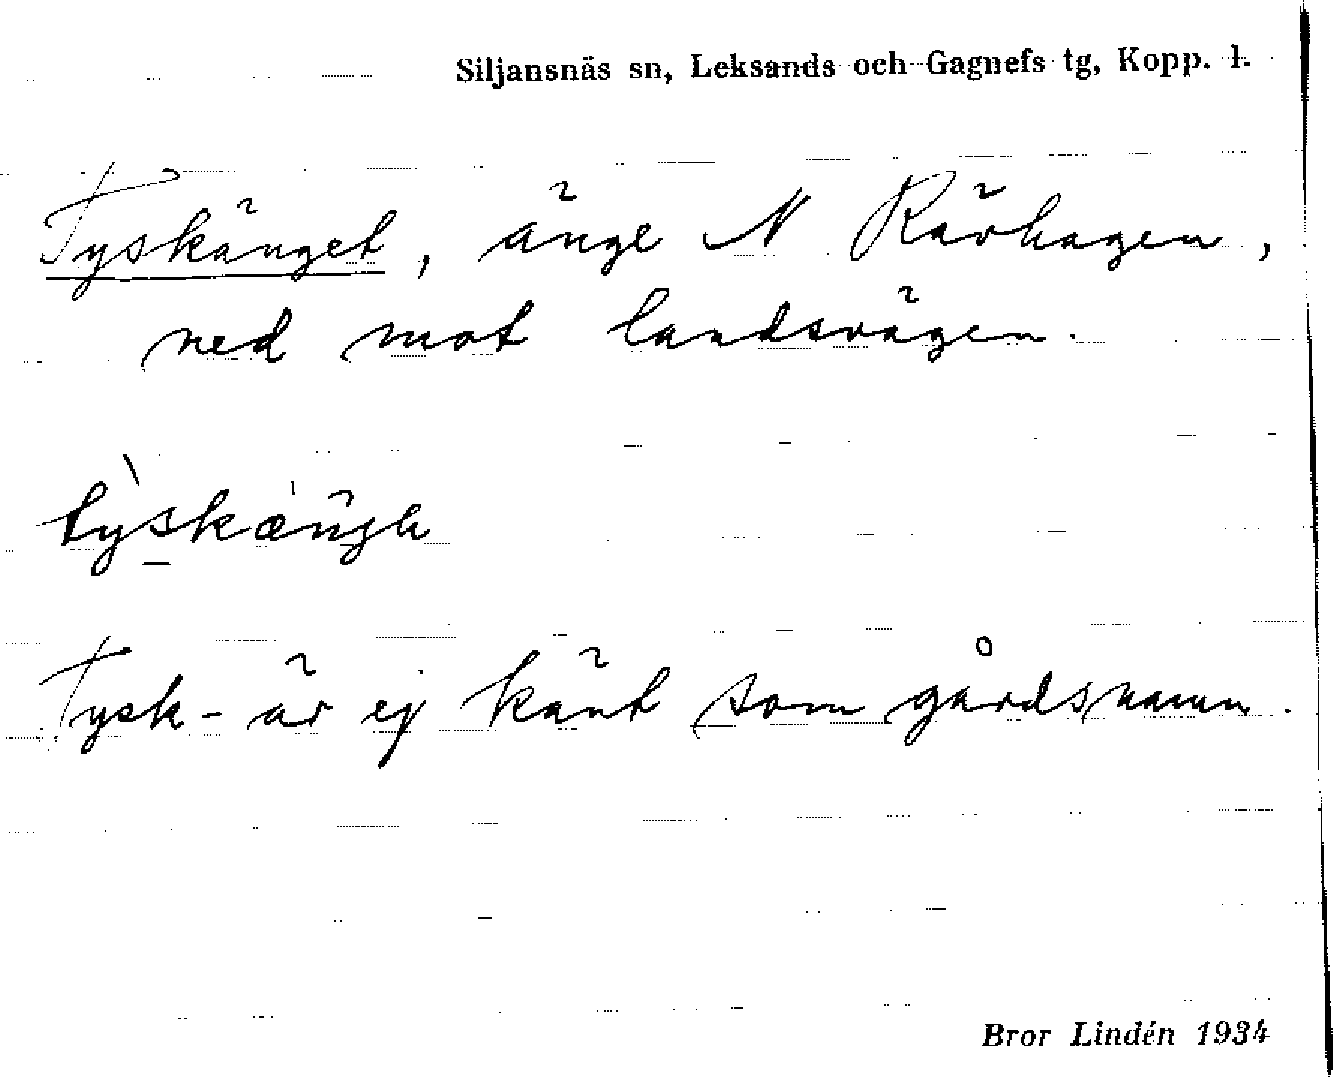 Siljansnäs sn, Leksands och Gagnefs tg, Kopp. l.
Tyskänget, änge N Rävhagen,
ned mot landsvägen.
Tysk- är ej känt som gårdsnamn.
Bror Lindén 1934